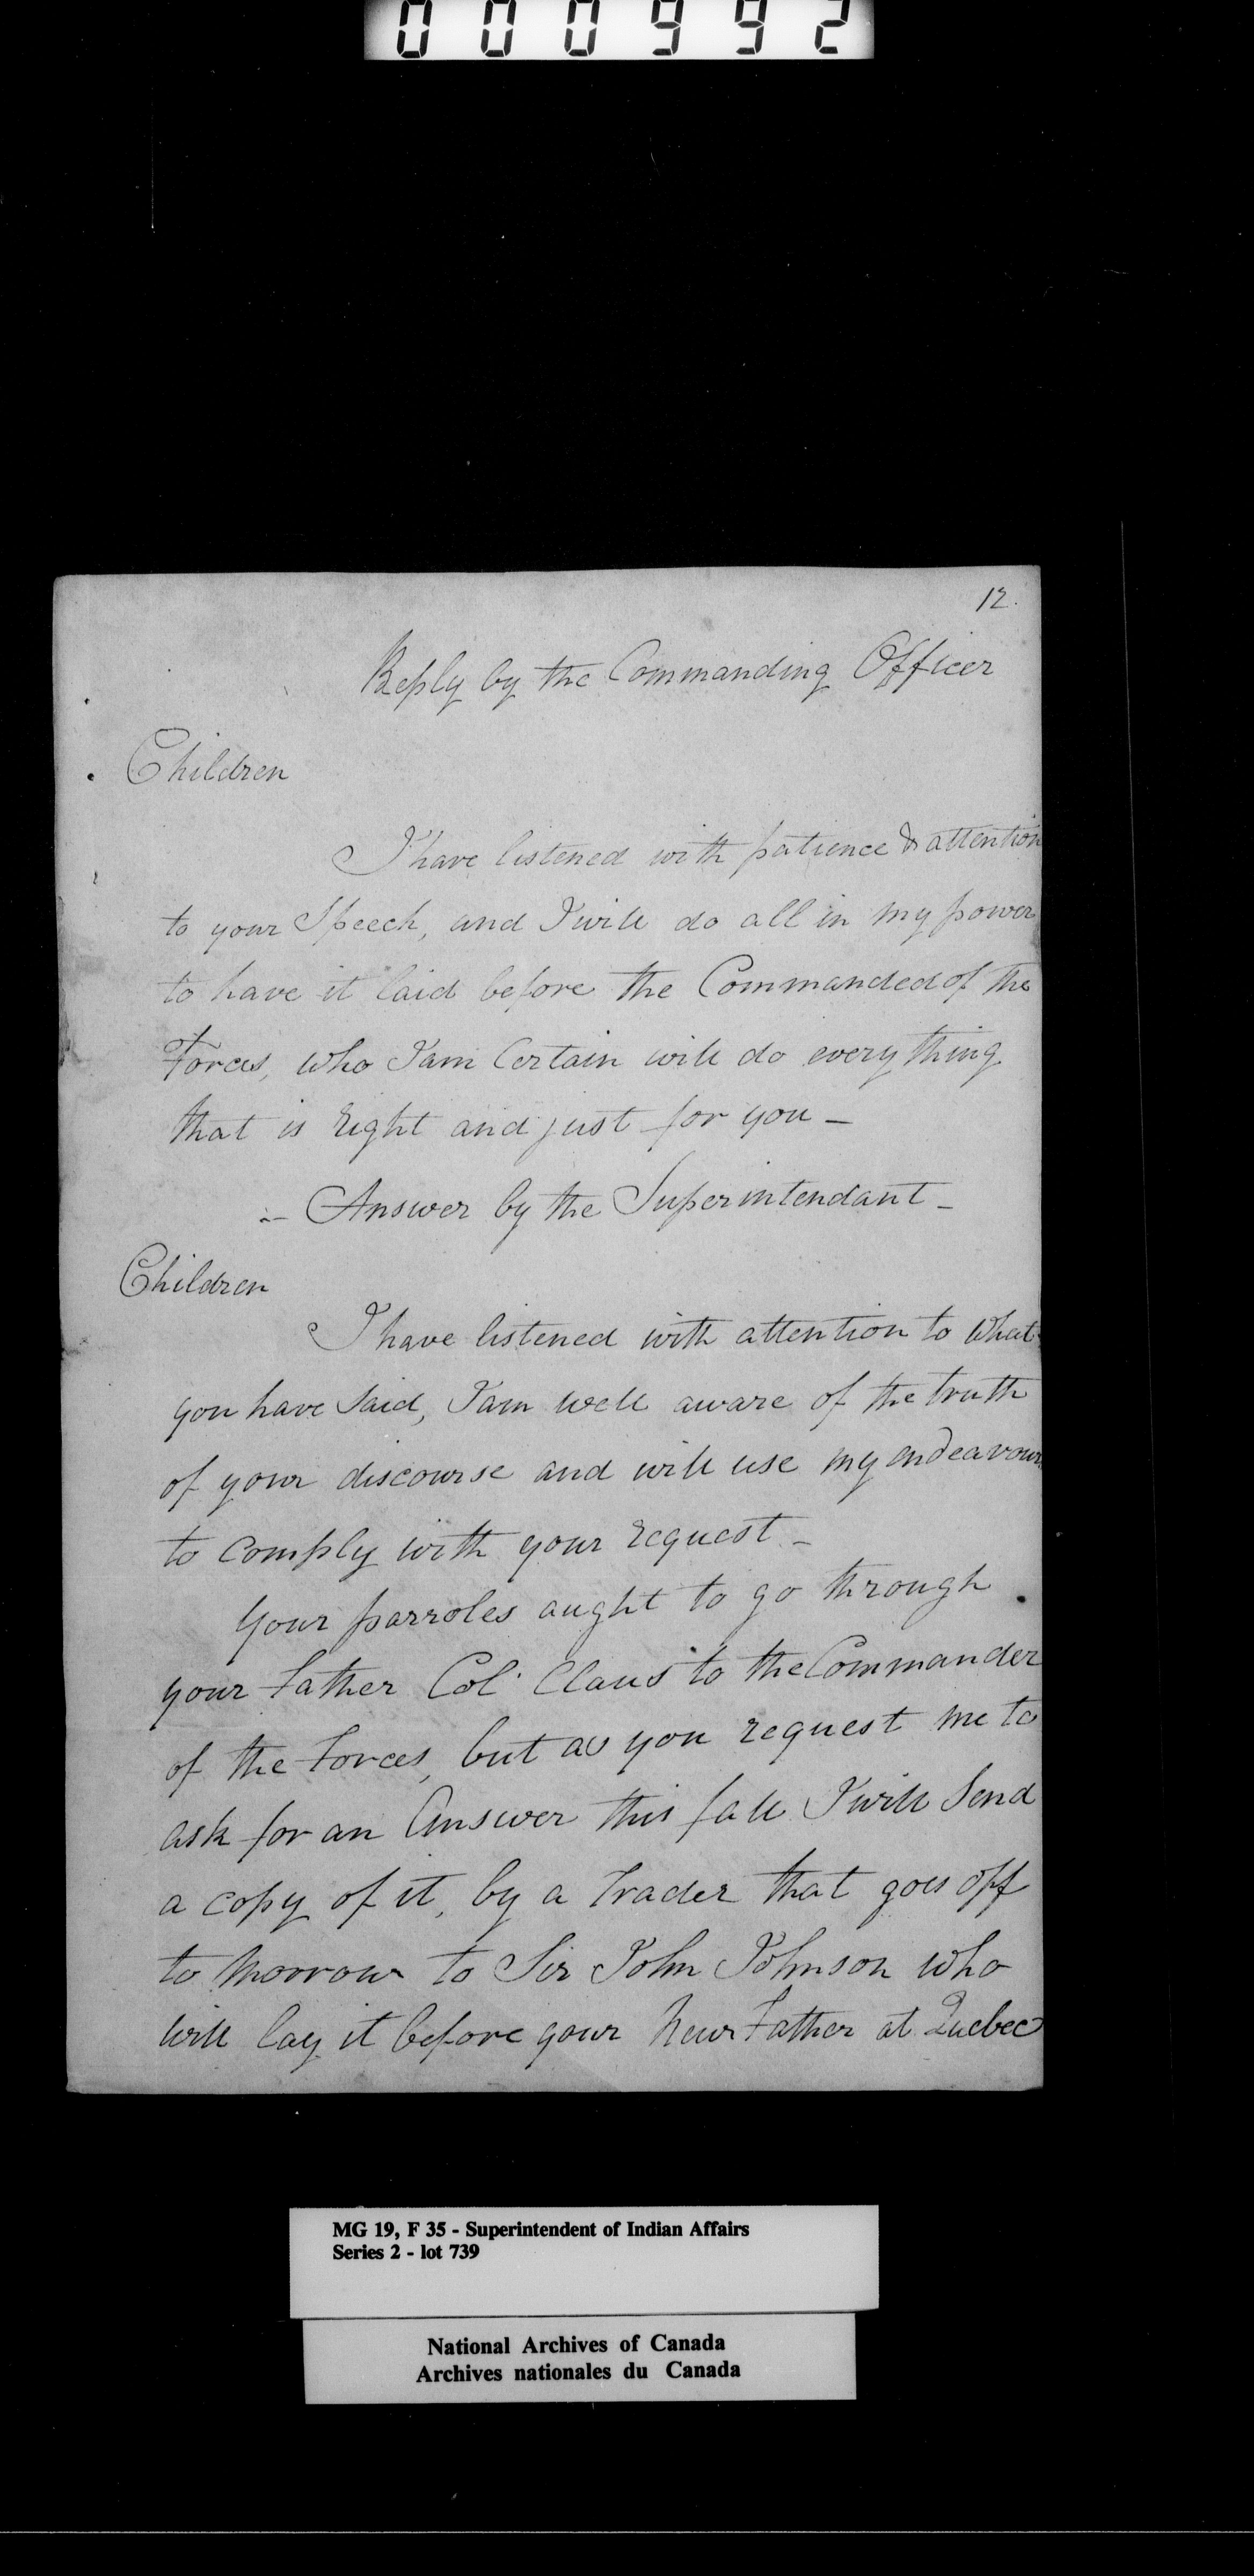 000992
12.
Reply by the Commanding Officer
Children
I have listened with patience & attention
to your Speech, and I will do all in my power
to have it laid before the Commanded of the
Forces, who I am Certain will do every thing
that is right and just for you -
:- Answer by the Superintendant -
Children
I have listened with attention to what
you have Said, I am well aware of the truth
of your discourse and will use my endeavours
to comply with your request -
Your parroles aught to go through
your Father Col. Claus to the Commander
of the Forces, but as you request me to
ask for an Answer this fall I will Send
a copy of it, by a Trader that goes off
to Morrow to Sir John Johnson who
will lay it before your New Father at Quebec
MG 19, F 35 - Superintendent of Indian Affairs
Series 2 - lot 739
National Archives of Canada
Archives nationales du Canada